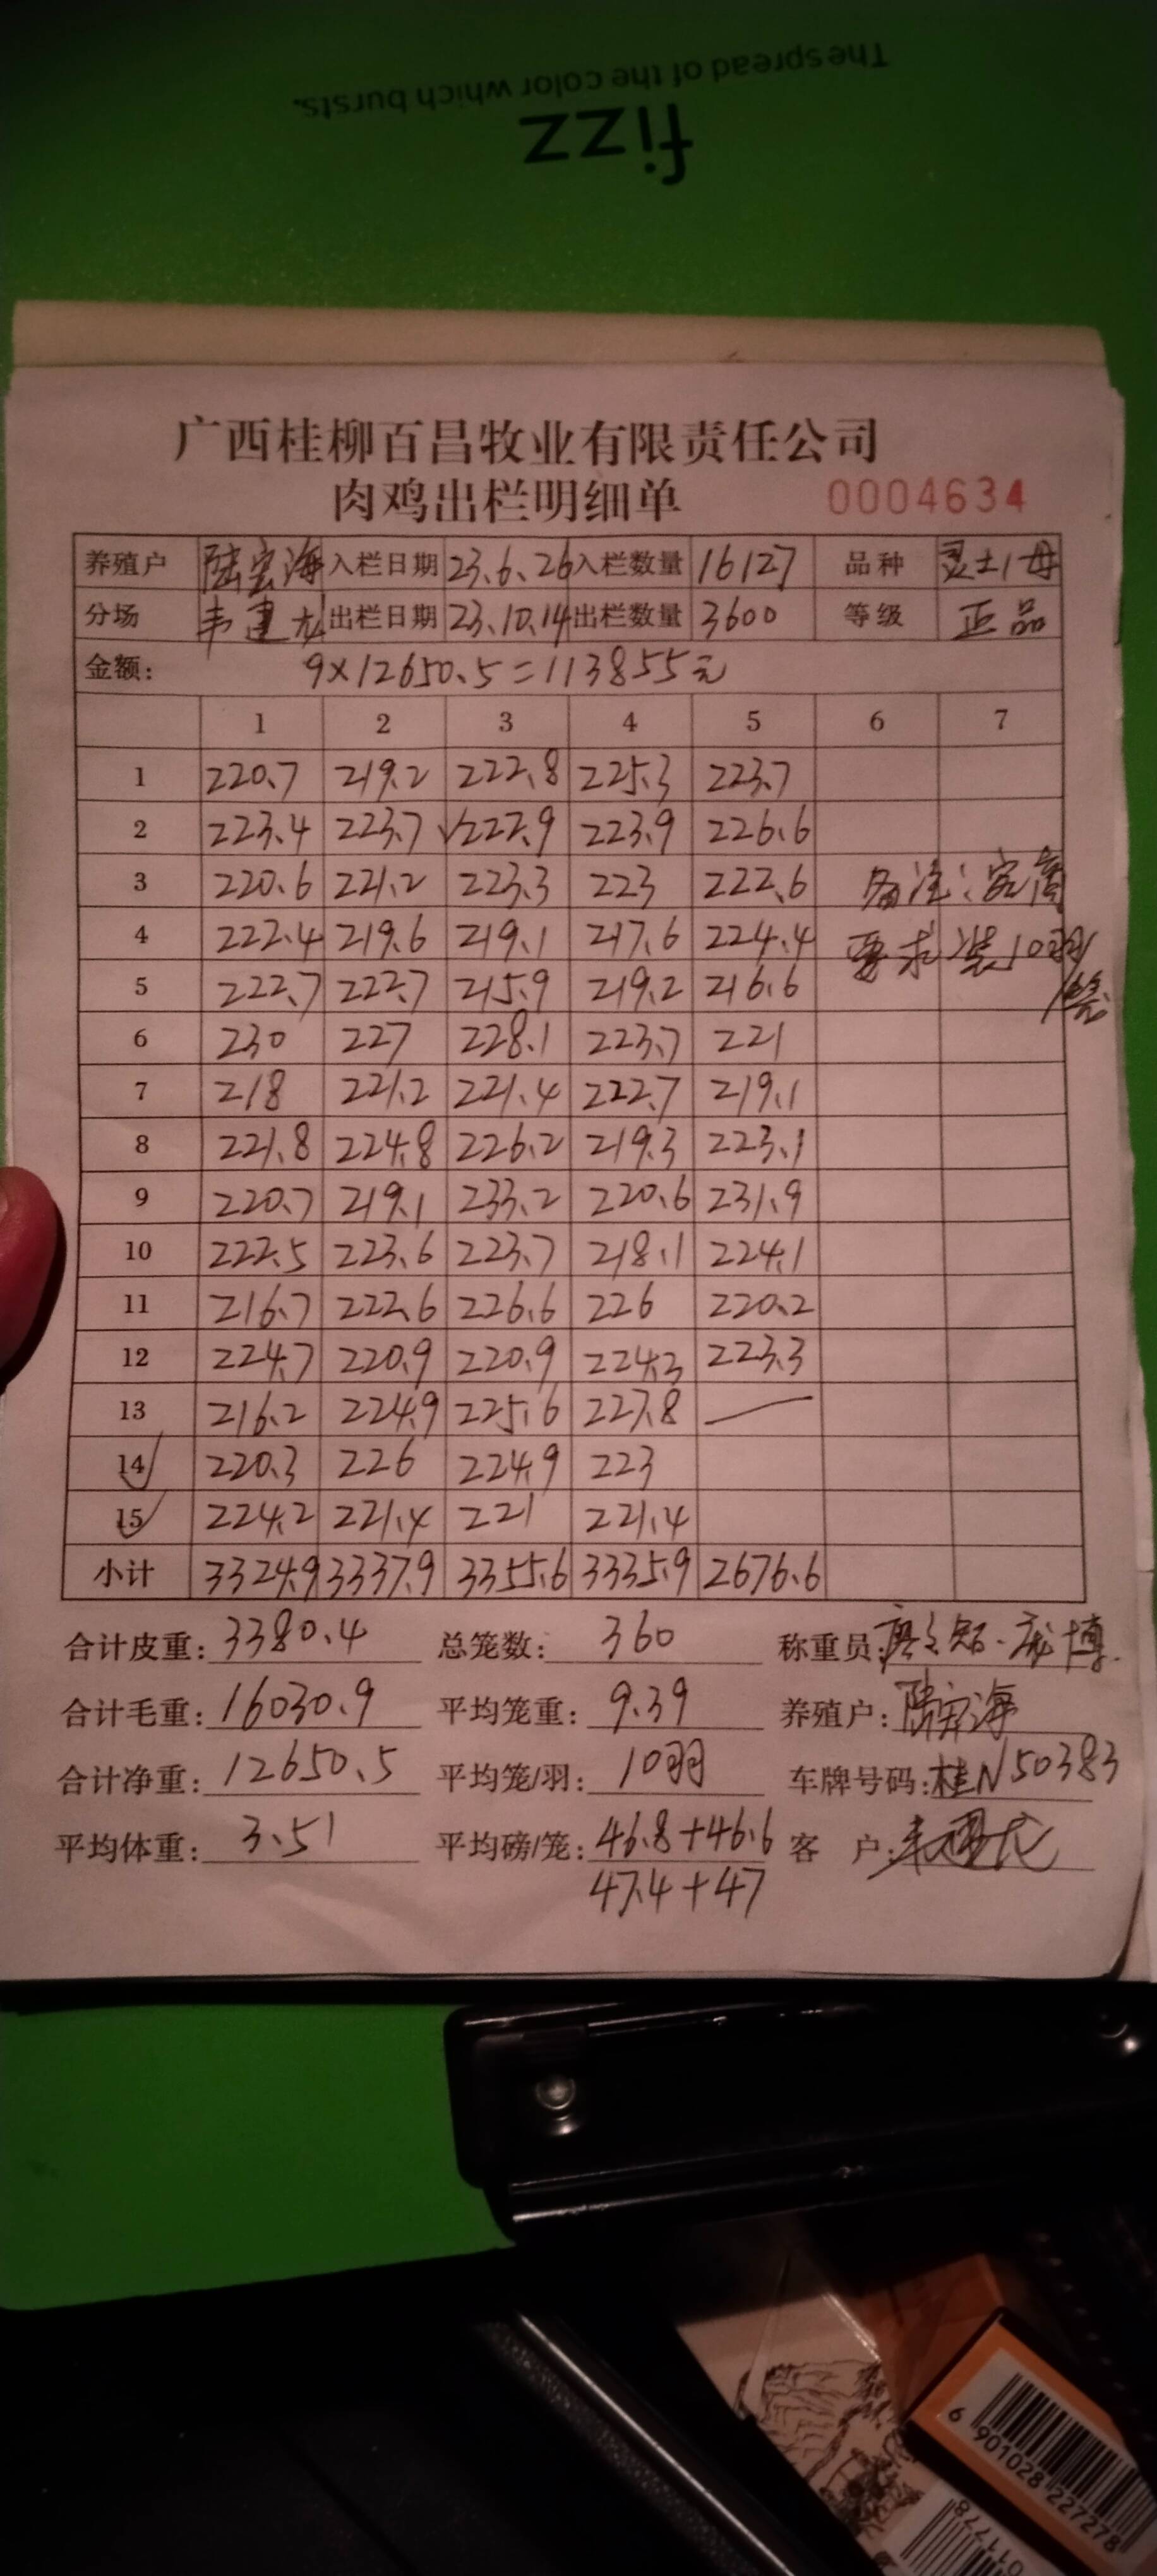 The spread of the color which bursts.
fizz
广西桂柳百昌牧业有限责任公司
肉鸡出栏明细单 0004634
养殖户 陆宏海 入栏日期 23.6.26 入栏数量 16127 品种 灵土1母
分场 韦建龙 出栏日期 23.10.14 出栏数量 3600 等级 正品
金额: 9×12650.5=113855元
1 2 3 4 5 6 7
1 220.7 219.2 222.8 225.3 223.7
2 223.4 223.7 √222.9 223.9 226.6
3 220.6 221.2 223.3 223 222.6 备注:客商
4 222.4 219.6 219.1 217.6 224.4 要求装10羽/
5 222.7 222.7 215.9 219.2 216.6 笼
6 230 227 228.1 223.7 221
7 218 221.2 221.4 222.7 219.1
8 221.8 224.8 226.2 219.3 223.1
9 220.7 219.1 233.2 220.6 231.9
10 222.5 223.6 223.7 218.1 224.1
11 216.7 222.6 226.6 226 220.2
12 224.7 220.9 220.9 224.3 223.3
13 216.2 224.9 225.6 227.8 —
14 220.3 226 224.9 223
15 224.2 221.4 221 221.4
小计 3324.9 3337.9 3355.6 3335.9 2676.6
合计皮重: 3380.4 总笼数: 360 称重员:
合计毛重: 16030.9 平均笼重: 9.39 养殖户: 陆宏海
合计净重: 12650.5 平均笼/羽: 10羽 车牌号码: 桂N50383
平均体重: 3.51 平均磅/笼: 46.8+46.6 客 户:
47.4+47
6 901028 227278
011778